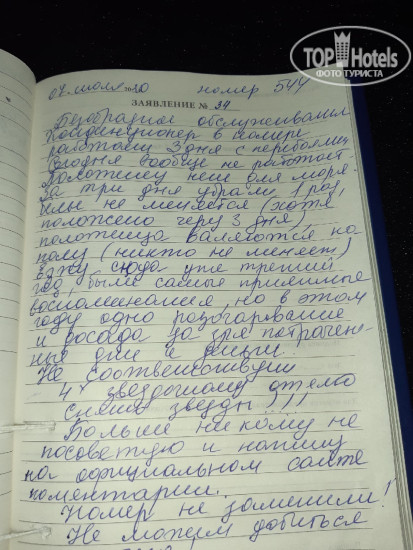 TOP Hotels
ФОТО ТУРИСТА
07 июля 2020 номер 544
ЗАЯВЛЕНИЕ № 34
Безобразное обслуживание
Кондиционер в номере
работал 3 дня с перебоями
сегодня вообще не работает.
Полотенец нет для моря.
За три дня убрали 1 раз
не меняется (хотя
положено через 3 дня)
полотенца валяются на
полу (никто не меняет)
Езжу сюда уже третий
год, были самые приятные
воспоминания, но в этом
году одно разочарование
и досада за зря потрачен-
ные дни и деньги!
Не соответствующий
4* звездочному отелю
Сними звезды!!!
Больше никому не
посоветую и напишу
на официальном сайте
коментарии.
Номер не заменили!
Не можем добиться